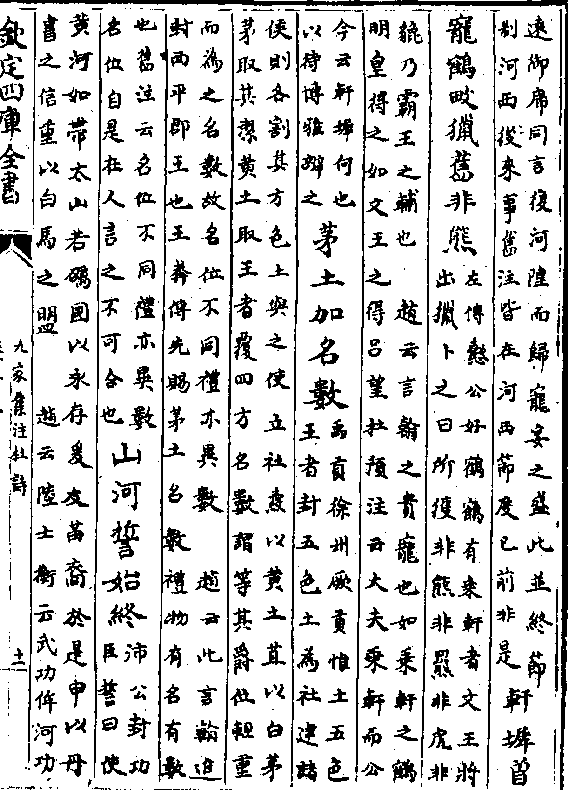 遠御席同言復河隍而歸寵妄之盛此並終節
制河西後來事舊注皆在河西節度已前非是
軒墀曾
寵鶴畋獵舊非熊
左傳懿公好鶴鶴有乗軒者文王將
出獵卜之曰所獲非熊非羆非虎非
貔乃霸王之輔也 趙云言翰之貴寵也如乗軒之鶴
明皇得之如文王之得呂望杜預注云大夫乗軒而公
今云軒墀何也
以待博雅辯之
茅土加名數
禹貢徐州厥貢惟土五色
王者封五色土為社建諸
侯則各割其方色土與之使立社燾以黄土苴以白茅
茅取其潔黄土取王者覆四方名數謂等其爵位輕重
而為之名數故名位不同禮亦異數 趙云此言翰進
封西平郡王也王莽傳先賜茅土名數禮物有名有數
也舊注云名位不同禮亦異數
名位自是在人言之不可合也
山河誓始終
沛公封功
臣誓曰使
黄河如帶太山若礪國以永存爰及苗裔於是申以丹
書之信重以白馬之盟 趙云陸士衡云武功侔河功
欽定四庫全書
九家集注杜詩
十一